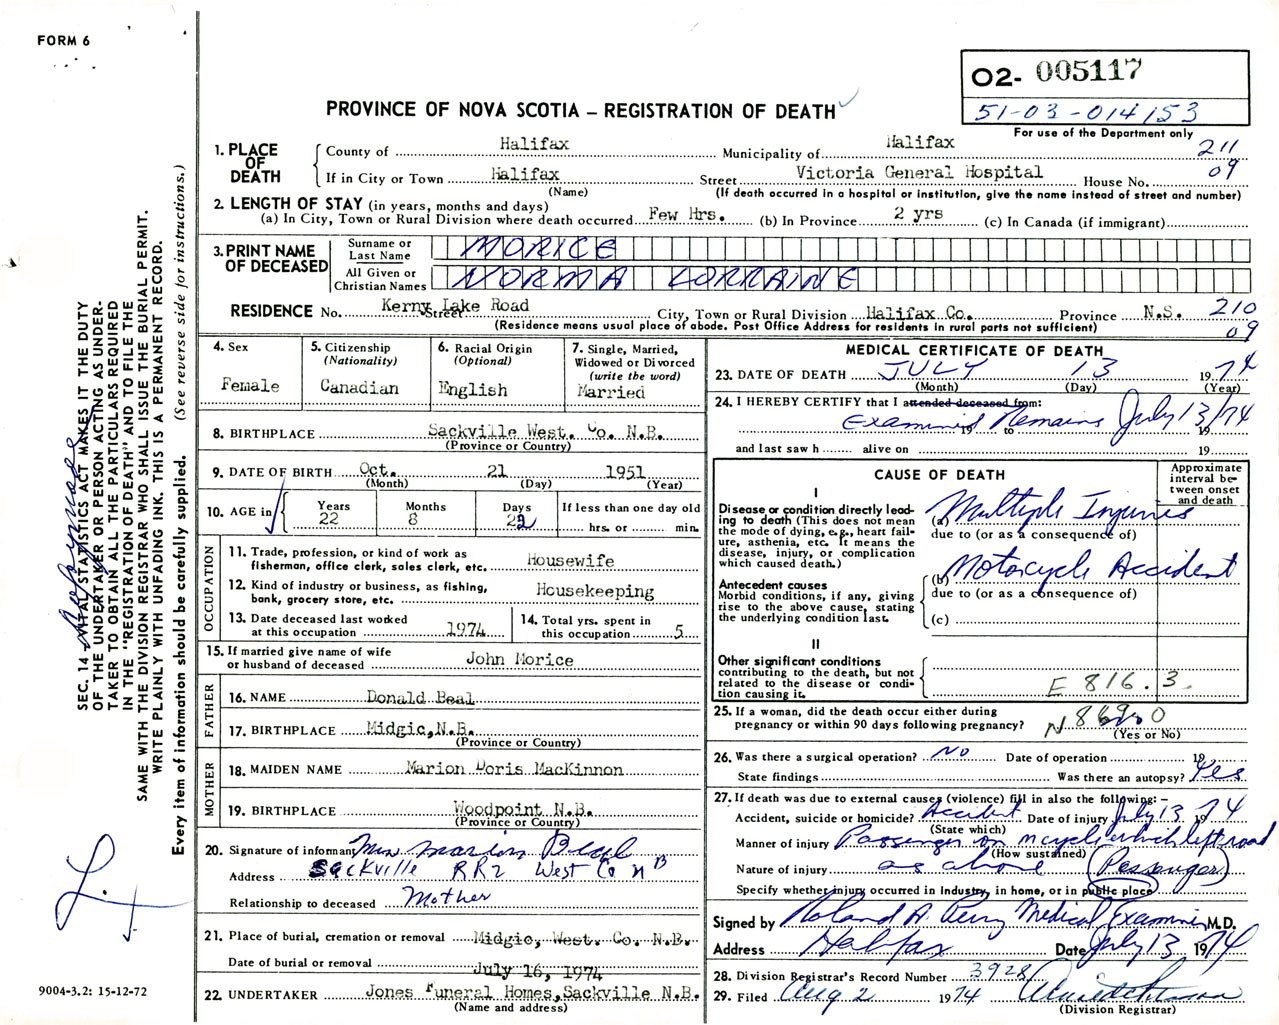 FORM 6
O2- 005117
51-03-014153
For use of the Department only
PROVINCE OF NOVA SCOTIA – REGISTRATION OF DEATH
211
09
1. PLACE OF DEATH
County of Halifax Municipality of Halifax
If in City or Town Halifax Street Victoria General Hospital House No.
(Name) (If death occurred in a hospital or institution, give the name instead of street and number)
2. LENGTH OF STAY (in years, months and days)
(a) In City, Town or Rural Division where death occurred Few Hrs. (b) In Province 2 yrs (c) In Canada (if immigrant)
3. PRINT NAME OF DECEASED
Surname or Last Name MORICE
All Given or Christian Names NORMA LORRAINE
RESIDENCE No. Kerny Lake Road Street City, Town or Rural Division Halifax Co. Province N.S. 210
(Residence means usual place of abode. Post Office Address for residents in rural parts not sufficient) 09
4. Sex
Female
5. Citizenship
(Nationality)
Canadian
6. Racial Origin
(Optional)
English
7. Single, Married, Widowed or Divorced
(write the word)
Married
8. BIRTHPLACE Sackville West. Co. N.B.
(Province or Country)
9. DATE OF BIRTH Oct. 21 1951
(Month) (Day) (Year)
10. AGE in
Years Months Days If less than one day old
22 8 22 hrs. or min.
OCCUPATION
11. Trade, profession, or kind of work as fisherman, office clerk, sales clerk, etc. Housewife
12. Kind of industry or business, as fishing, bank, grocery store, etc. Housekeeping
13. Date deceased last worked at this occupation 1974
14. Total yrs. spent in this occupation 5
15. If married give name of wife or husband of deceased John Morice
FATHER
16. NAME Donald Beal
17. BIRTHPLACE Midgic, N.B.
(Province or Country)
MOTHER
18. MAIDEN NAME Marion Doris MacKinnon
19. BIRTHPLACE Woodpoint N.B.
(Province or Country)
20. Signature of informant Mrs Marion Beal
Address Sackville RR2 West Co NB
Relationship to deceased Mother
21. Place of burial, cremation or removal Midgic, West. Co. N.B.
Date of burial or removal July 16, 1974
22. UNDERTAKER Jones Funeral Homes, Sackville N.B.
(Name and address)
MEDICAL CERTIFICATE OF DEATH
23. DATE OF DEATH JULY 13 1974
(Month) (Day) (Year)
24. I HEREBY CERTIFY that I attended deceased from:
Examined Remains July 13/74
19 to 19
and last saw h alive on 19
CAUSE OF DEATH
Approximate interval between onset and death
I
Disease or condition directly leading to death (This does not mean the mode of dying, e.g., heart failure, asthenia, etc. It means the disease, injury, or complication which caused death.)
(a) Multiple Injuries
due to (or as a consequence of)
Antecedent causes
Morbid conditions, if any, giving rise to the above cause, stating the underlying condition last.
(b) Motorcycle Accident
due to (or as a consequence of)
(c)
II
Other significant conditions contributing to the death, but not related to the disease or condition causing it.
E 816.3
25. If a woman, did the death occur either during pregnancy or within 90 days following pregnancy? No
(Yes or No)
26. Was there a surgical operation? No Date of operation 19
State findings Was there an autopsy? Yes
27. If death was due to external causes (violence) fill in also the following:–
Accident, suicide or homicide? Accident Date of injury July 13 1974
(State which)
Manner of injury Passenger on m cycle which left road
(How sustained)
Nature of injury as above (Passenger)
Specify whether injury occurred in Industry, in home, or in public place
Signed by Roland A. Perry Medical Examiner M.D.
Address Halifax Date July 13 1974
28. Division Registrar's Record Number 3928
29. Filed Aug 2 1974
(Division Registrar)
SEC. 14 VITAL STATISTICS ACT MAKES IT THE DUTY
OF THE UNDERTAKER OR PERSON ACTING AS UNDER-
TAKER TO OBTAIN ALL THE PARTICULARS REQUIRED
IN THE "REGISTRATION OF DEATH" AND TO FILE THE
SAME WITH THE DIVISION REGISTRAR WHO SHALL ISSUE THE BURIAL PERMIT.
WRITE PLAINLY WITH UNFADING INK. THIS IS A PERMANENT RECORD.
Every item of information should be carefully supplied. (See reverse side for instructions.)
9004-3.2: 15-12-72